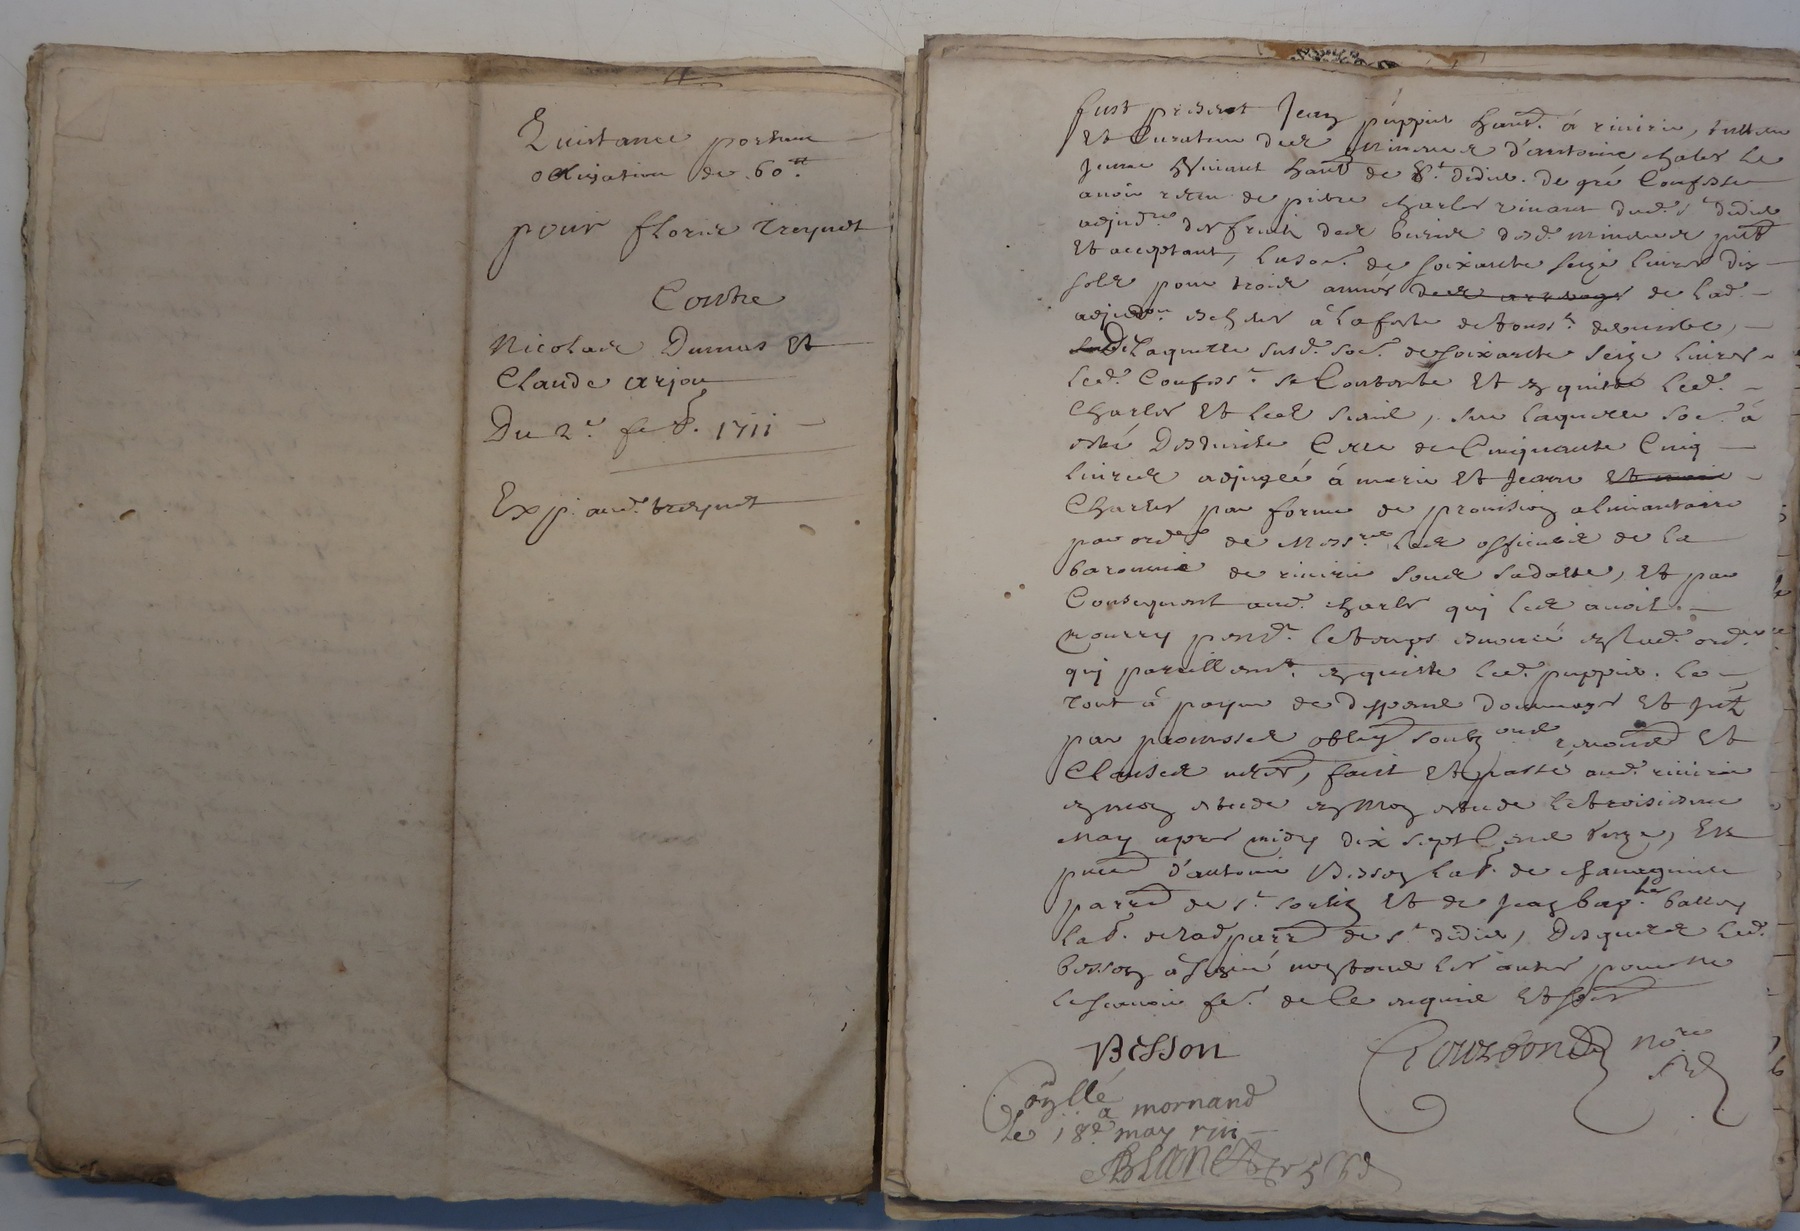 Quittance portant
obligation de 60ᵗᵗ
pour fleurie treynet
Contre
Nicolas Dumas Et
Claude arjou
Du 2ᵉ feb. 1711
Exp. aud. treynet
fust present Jean puppier habt. á riuirie, tutteur
Et Curateur des mineurs d'antoine charles le
jeune viuant habt de St didier. de gré Confesse
auoir receu de pierre charles viuant dud. St didier
adjudre des fruits des biens desd. mineurs pnt
Et acceptant, la so.e de soixante seize liures dix
solz pour trois années des arrerages de lad.
adjudon. escheus á la feste de touss.ts derniere,
de laquelle susd. soe. de soixante seize liures
led. Confess.t se Contente Et en quitte led.
Charles Et les siens, sur laquelle soe. á
esté Desduitte Celle de Cinquante Cinq
liures adjugée á marie Et Jeanne Et marie
Charles par forme de prouision alimantaire
par ordce de Messrs les officiers de la
baronnie de riuirie sous sa datte, Et par
Consequent aud. charles qui les auoit
nourry pendt. le temps enoncé en lad. ordce
qui pareillemt. en quitte led. puppier. le
tout á peyne de despens dommages Et jntz
par promesses oblig soubz ons renons Et
Clauses nres, fait Et passé aud. riuirie
en mon estude en mon estude le troisieme
May apres midy dix sept Cens unze, En
pnce d'antoine Besson lab. de
parre de St. sorlin Et de Jean bapt.
lab. de lad parre de St didier, Desquels led.
besson á signé non tous les autres pour ne
le scauoir fe. de Ce enquis Et
Besson
nore
Conllé
a mornand
le 18e may 1711
Blanc